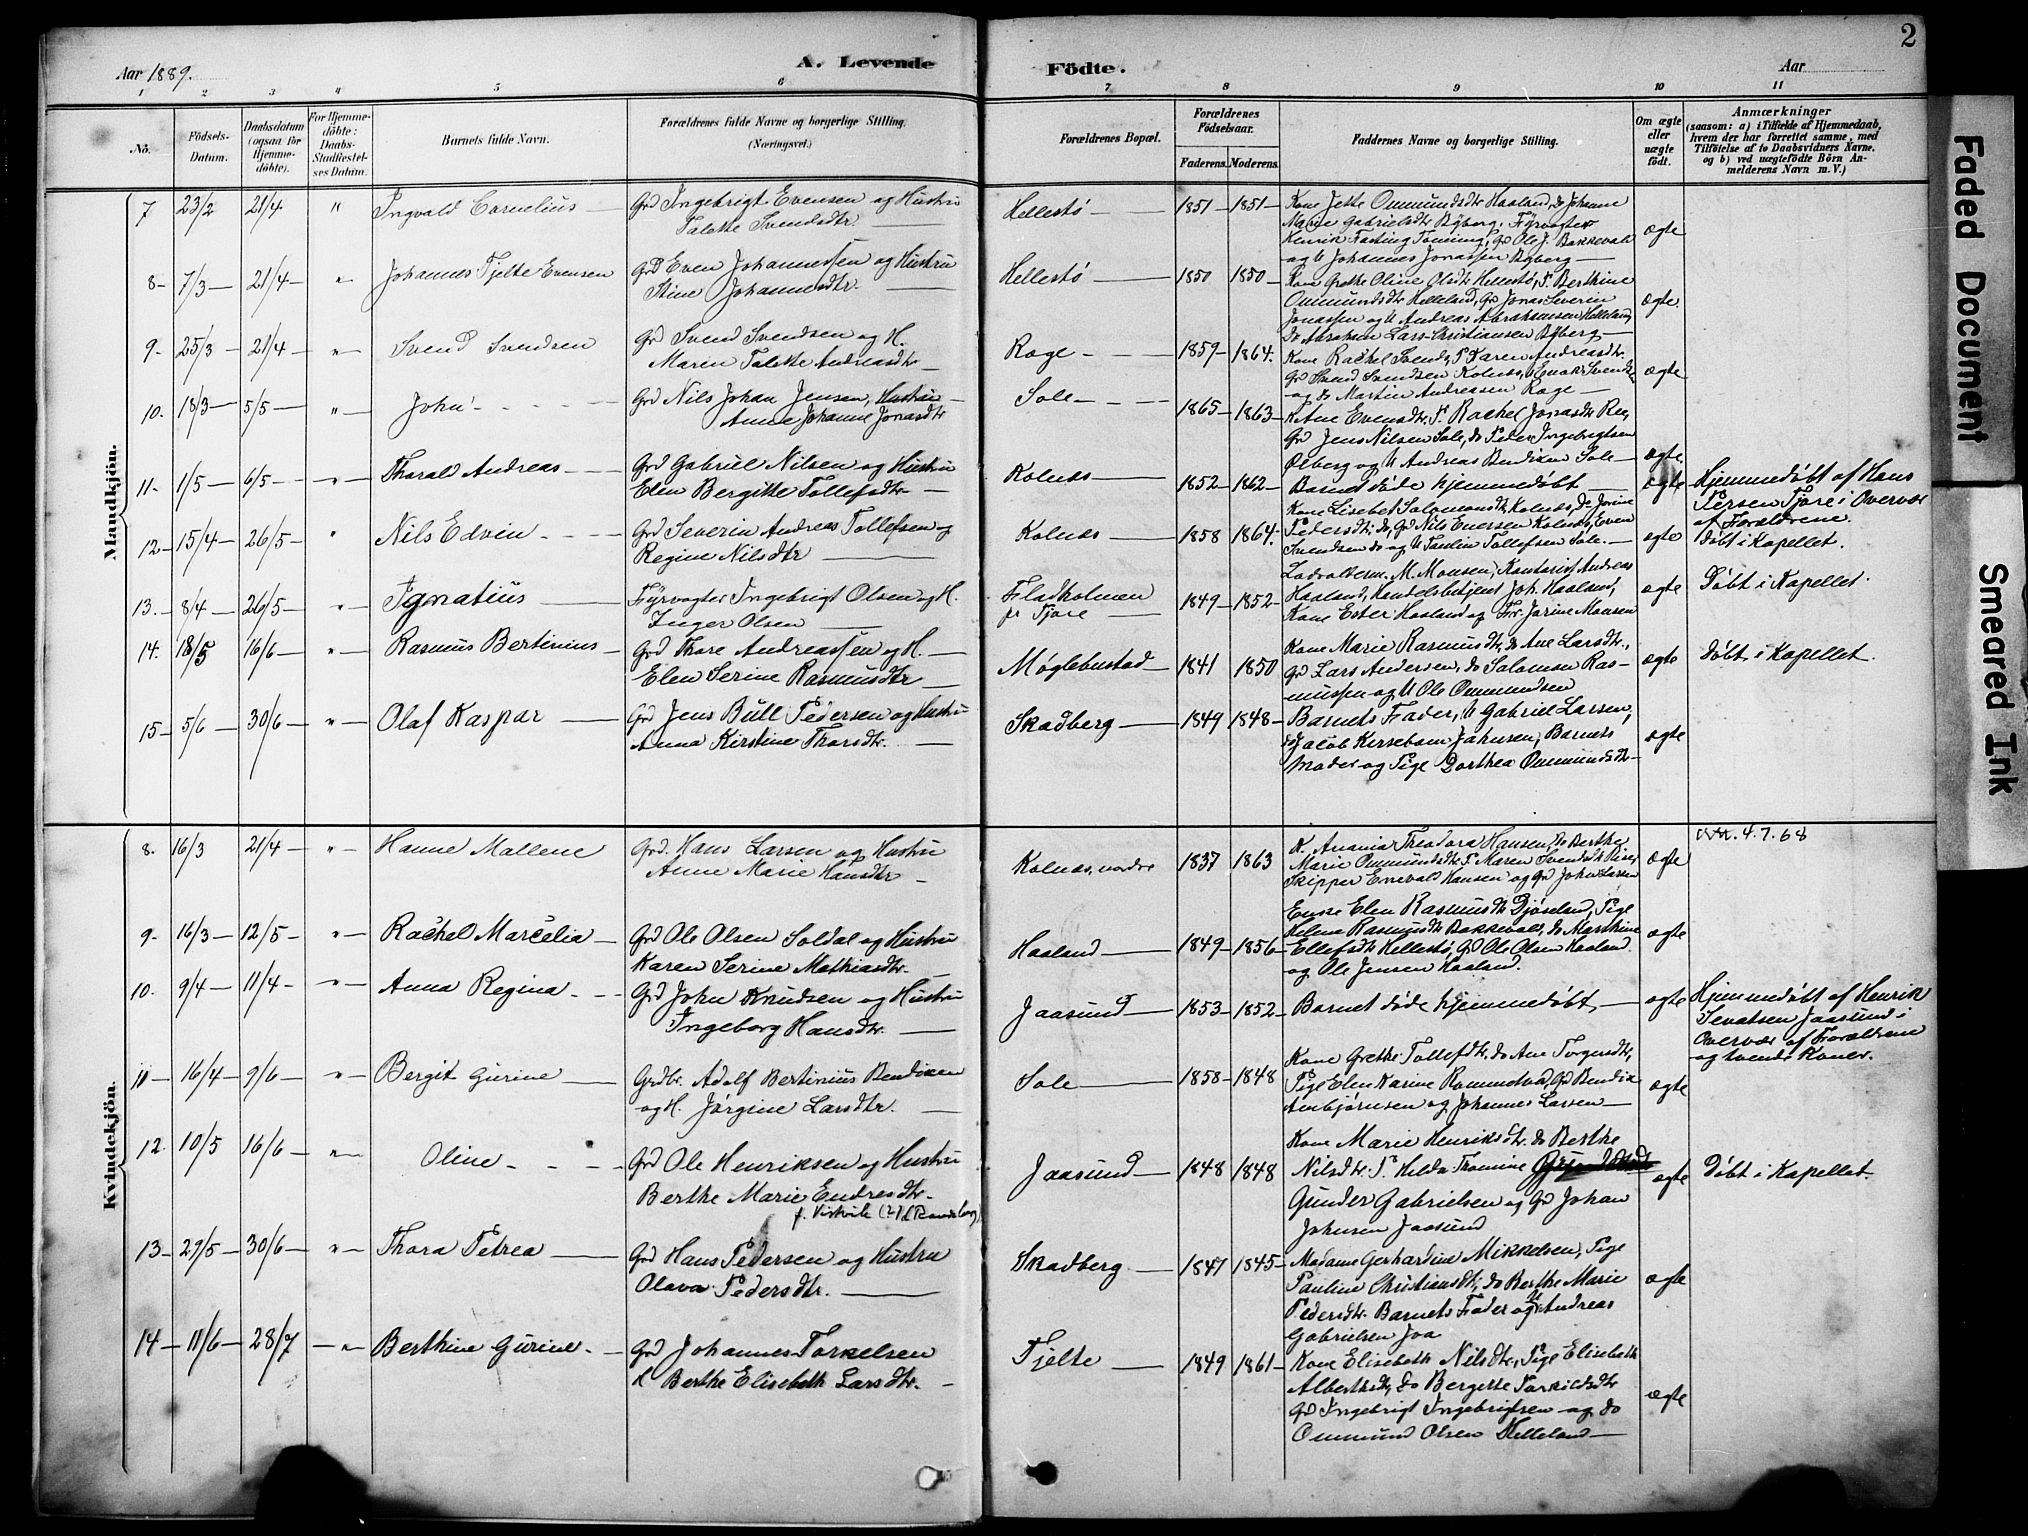 2
Aar 1889.
A. Levende
Födte.
Aar
1 2 3 4 5 6 7 8 9 10 11
No.
Födsels-
Datum.
Daabsdatum
(ogsaa for
Hjemme-
döbte).
For Hjemme-
döbte:
Daabs-
Stadfæstel-
ses Datum.
Barnets fulde Navn.
Forældrenes fulde Navne og borgerlige Stilling.
(Næringsvei.)
Forældrenes Bopæl.
Forældrenes
Födselsaar.
Faderens. Moderens.
Faddernes Navne og borgerlige Stilling.
Om ægte
eller
uægte
födt.
Anmærkninger
(saasom: a) i Tilfælde af Hjemmedaab,
hvem der har forrettet samme, med
Tilföielse af to Daabsvidners Navne.
og b) ved uægtefödte Börn An-
melderens Navn m. V.)
Mandkjön.
7 23/2 21/4 " Ingvald Cornelius
Grd Ingebrigt Evensen og Hustru
Talette Svendsdtr.
Hellestø 1851 1851
Kone Jette Ommundsdtr Haaland, do Johanne
Marie Gabrielsdtr Byberg, Fyrvogter
Henrik Fasting Tønning, Gd Ole J. Bakkevold
og U Johannes Jonassen Byberg
ægte
8 7/3 21/4 " Johannes Tjelte Evensen
Grd Even Johannessen og Hustru
Stine Johannesdtr.
Hellestø 1850 1850
Kone Grethe Oline Olsdtr Hellestø, P. Berthine
Ommundsdtr Helleland, Gd Jonas Severin
Jonassen og U Andreas Abrahamsen Helleland,
do Abraham Lars Christiansen Byberg
ægte
9. 25/3 21/4 " Svend Svendsen
Grd Svend Svendsen og H.
Maren Talette Andreasdtr
Rage 1859 1864.
Kone Rachel Svends, P. Karen Andreasdtr.
Gd Svend Svendsen Kolnes, Enok Svendsen
og do Martin Andreasen Rage
ægte
10. 18/3 5/5 " John
Grd Nils Johan Jensen, Hustru
Anne Johanne Jonasdtr
Sole 1865 1863
K. Ane Evensdtr, P. Rachel Jonasdtr Reg,
Gd Jens Nilsen Sole, do Peder Ingebrigtsen
Ølberg og U Andreas Bendixen Sole
ægte
11. 1/5 6/5 " Thorald Andreas
Grd Gabriel Nilsen og Hustru
Elen Bergitte Tollefsdtr
Kolnes 1852 1862
Barnet døde hjemmedøbt
ægte
Hjemmedøbt af Hans
Persen Tjore i Overvær
af Forældrene.
12 15/4 26/5 " Nils Edvin
Grd Severin Andreas Tollefsen og
Regine Nilsdtr
Kolnes 1858 1864.
Kone Lisebet Salomonsdtr Kolnes, do Jorine
Pedersdtr do, Gd Nils Enersen Kolnes, Even
Svendsen do og U Paulin Tollefsen Sole.
ægte
døbt i Kapellet.
13. 8/4 26/5 " Ignatius
Fyrvogter Ingebrigt Olsen og H.
Inger Olsen
Fladholmen
pr Tjore
1849 1852
Lodsolderm. M. Monsen, Kontorist Andreas
Haaland, Handelsbetjent Joh. Haaland,
Kone Ester Haaland og Fr. Jorine Monsen
ægte Døbt i Kapellet
14. 18/5 16/6 " Rasmus Bertinius
Grd Thore Andreassen og H.
Elen Serine Rasmusdtr
Møglebustad 1841 1850
Kone Marie Rasmusdtr, do Ane Larsdtr.,
Gd Lars Andersen, do Salomon Ras-
mussen og U Ole Ommundsen
ægte døbt i Kapellet.
15 5/6 30/6 " Olaf Kaspar
Grd Jens Bull Pedersen og Hustru
Anna Kirstine Thorsdtr.
Skadberg 1849 1848
Barnets Fader, U Gabriel Larsen,
do Jacob Kirsebom Johnsen, Barnets
Moder og Pige Dorthea Ommundsdtr
ægte
Kvindekjön.
8. 16/3 21/4 " Hanne Mallene
Grd. Hans Larsen og Hustru
Anne Marie Hansdtr
Kolnes, nordre 1837 1863
K. Anania Theodora Hansen, do Berthe
Marie Ommundsdtr, P. Maren Svendsdtr Risa,
Skipper Enevald Hansen og Gd John Larsen
ægte 4.7.68
9. 16/3 12/5 " Rachel Marcelia
Grd Ole Olsen Soldal og Hustru
Karen Serine Mathiasdtr.
Haaland 1849 1856
Enke Elen Rasmusdtr Gjøseland, Pige
Helene Rasmusdtr Bakkevold, do Marthine
Ellefsdtr Hellestø, Gd Ole Olsen Haaland
og Ole Jensen Haaland.
ægte
10. 9/4 11/4 " Anna Regina
Grd John Knudsen og Hustru
Ingeborg Hansdtr.
Jaasund 1853 1852
Barnet døde hjemmedøbt
ægte
Hjemmedøbt af Henrik
Sevatsen Jaasund i
Overvær af Forældrene
og tvende Koner.
11 16/4 9/6 " Bergit Gurine
Grdbr. Adolf Bertinius Bendixen
og H. Jørgine Larsdtr.
Sole 1858 1848
Kone Grethe Tollefsdtr, do Ane Torgersdtr,
Pige Elen Karine Rommetved, Gd Bendix
Arnbjørnsen og Johannes Larsen
ægte
12. 10/5 16/6 " Oline
Grd Ole Henriksen og Hustru
Berthe Marie Endresdtr.
f. Vistvik (27/1 Randaberg)
Jaasund 1848 1848
Kone Marie Henriksdtr. do Berthe
Nilsdtr. P. Helda Tomine
Gunder Gabrielsen og Gd Johan
Johnsen Jaasund
ægte Døbt i Kapellet.
13 29/5 30/6 " Thora Petrea
Grd Hans Pedersen og Hustru
Olava Pedersdtr.
Skadberg 1847 1845
Madame Gerhardine Mikkelsen, Pige
Pauline Christiansdtr, do Berthe Marie
Pedersdtr. Barnets Fader og U Andreas
Gabrielsen Joa
ægte
14 11/6 28/7 " Berthine Gurine
Grd Johannes Torkelsen
& Berthe Elisebeth Larsdtr.
Tjelte 1849 1861
Kone Elisebeth Nilsdtr, Pige Elisebeth
Albertsdtr, do Bergitte Torkildsdtr
Gd Ingebrigt Ingebrigtsen og do
Ommund Olsen Helleland
ægte
Faded Document
Smeared Ink